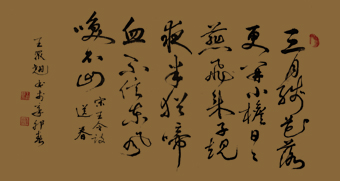 三月残花落
更开小檐日〻
燕飛来子規
夜半猶啼
血不信东风
唤不回
宋王令诗
送春